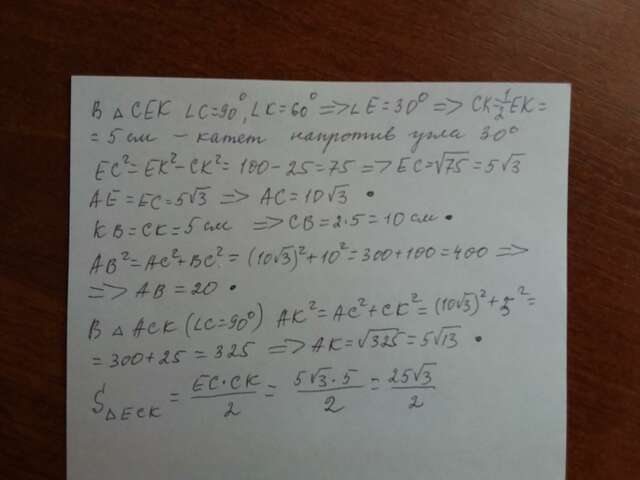 В △ CEK ∠C=90°, ∠K=60° => ∠E=30° => CK=1/2EK=
= 5 см – катет напротив угла 30°
EC²=EK²-CK²= 100-25=75 => EC=√75=5√3
AE=EC=5√3 => AC=10√3 •
KB=CK=5 см => CB=2·5=10 см •
AB²=AC²+BC²=(10√3)²+10²=300+100=400 =>
=> AB=20 •
В △ ACK (∠C=90°) AK²=AC²+CK²=(10√3)²+5²=
=300+25=325 => AK=√325=5√13 •
S△ECK = EC·CK/2 = 5√3·5/2 = 25√3/2